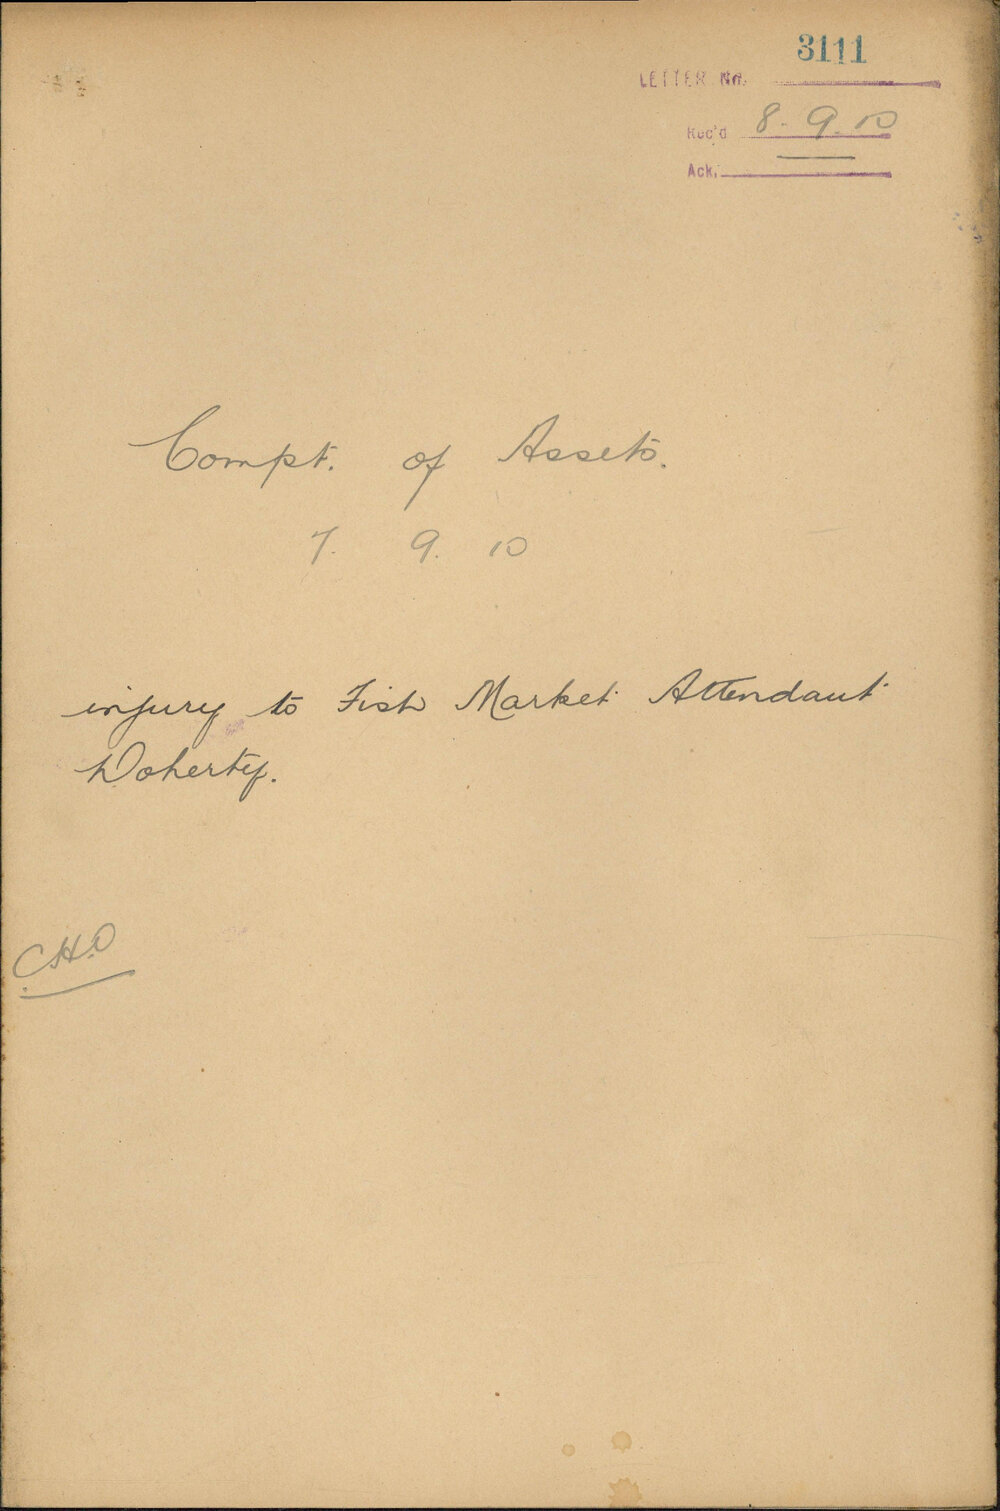 3111
LETTER No.
Rec'd 8. 9. 10
Ack.
Compt. of Assets.
7. 9. 10
injury to Fish Market Attendant
Doherty.
C.H.O